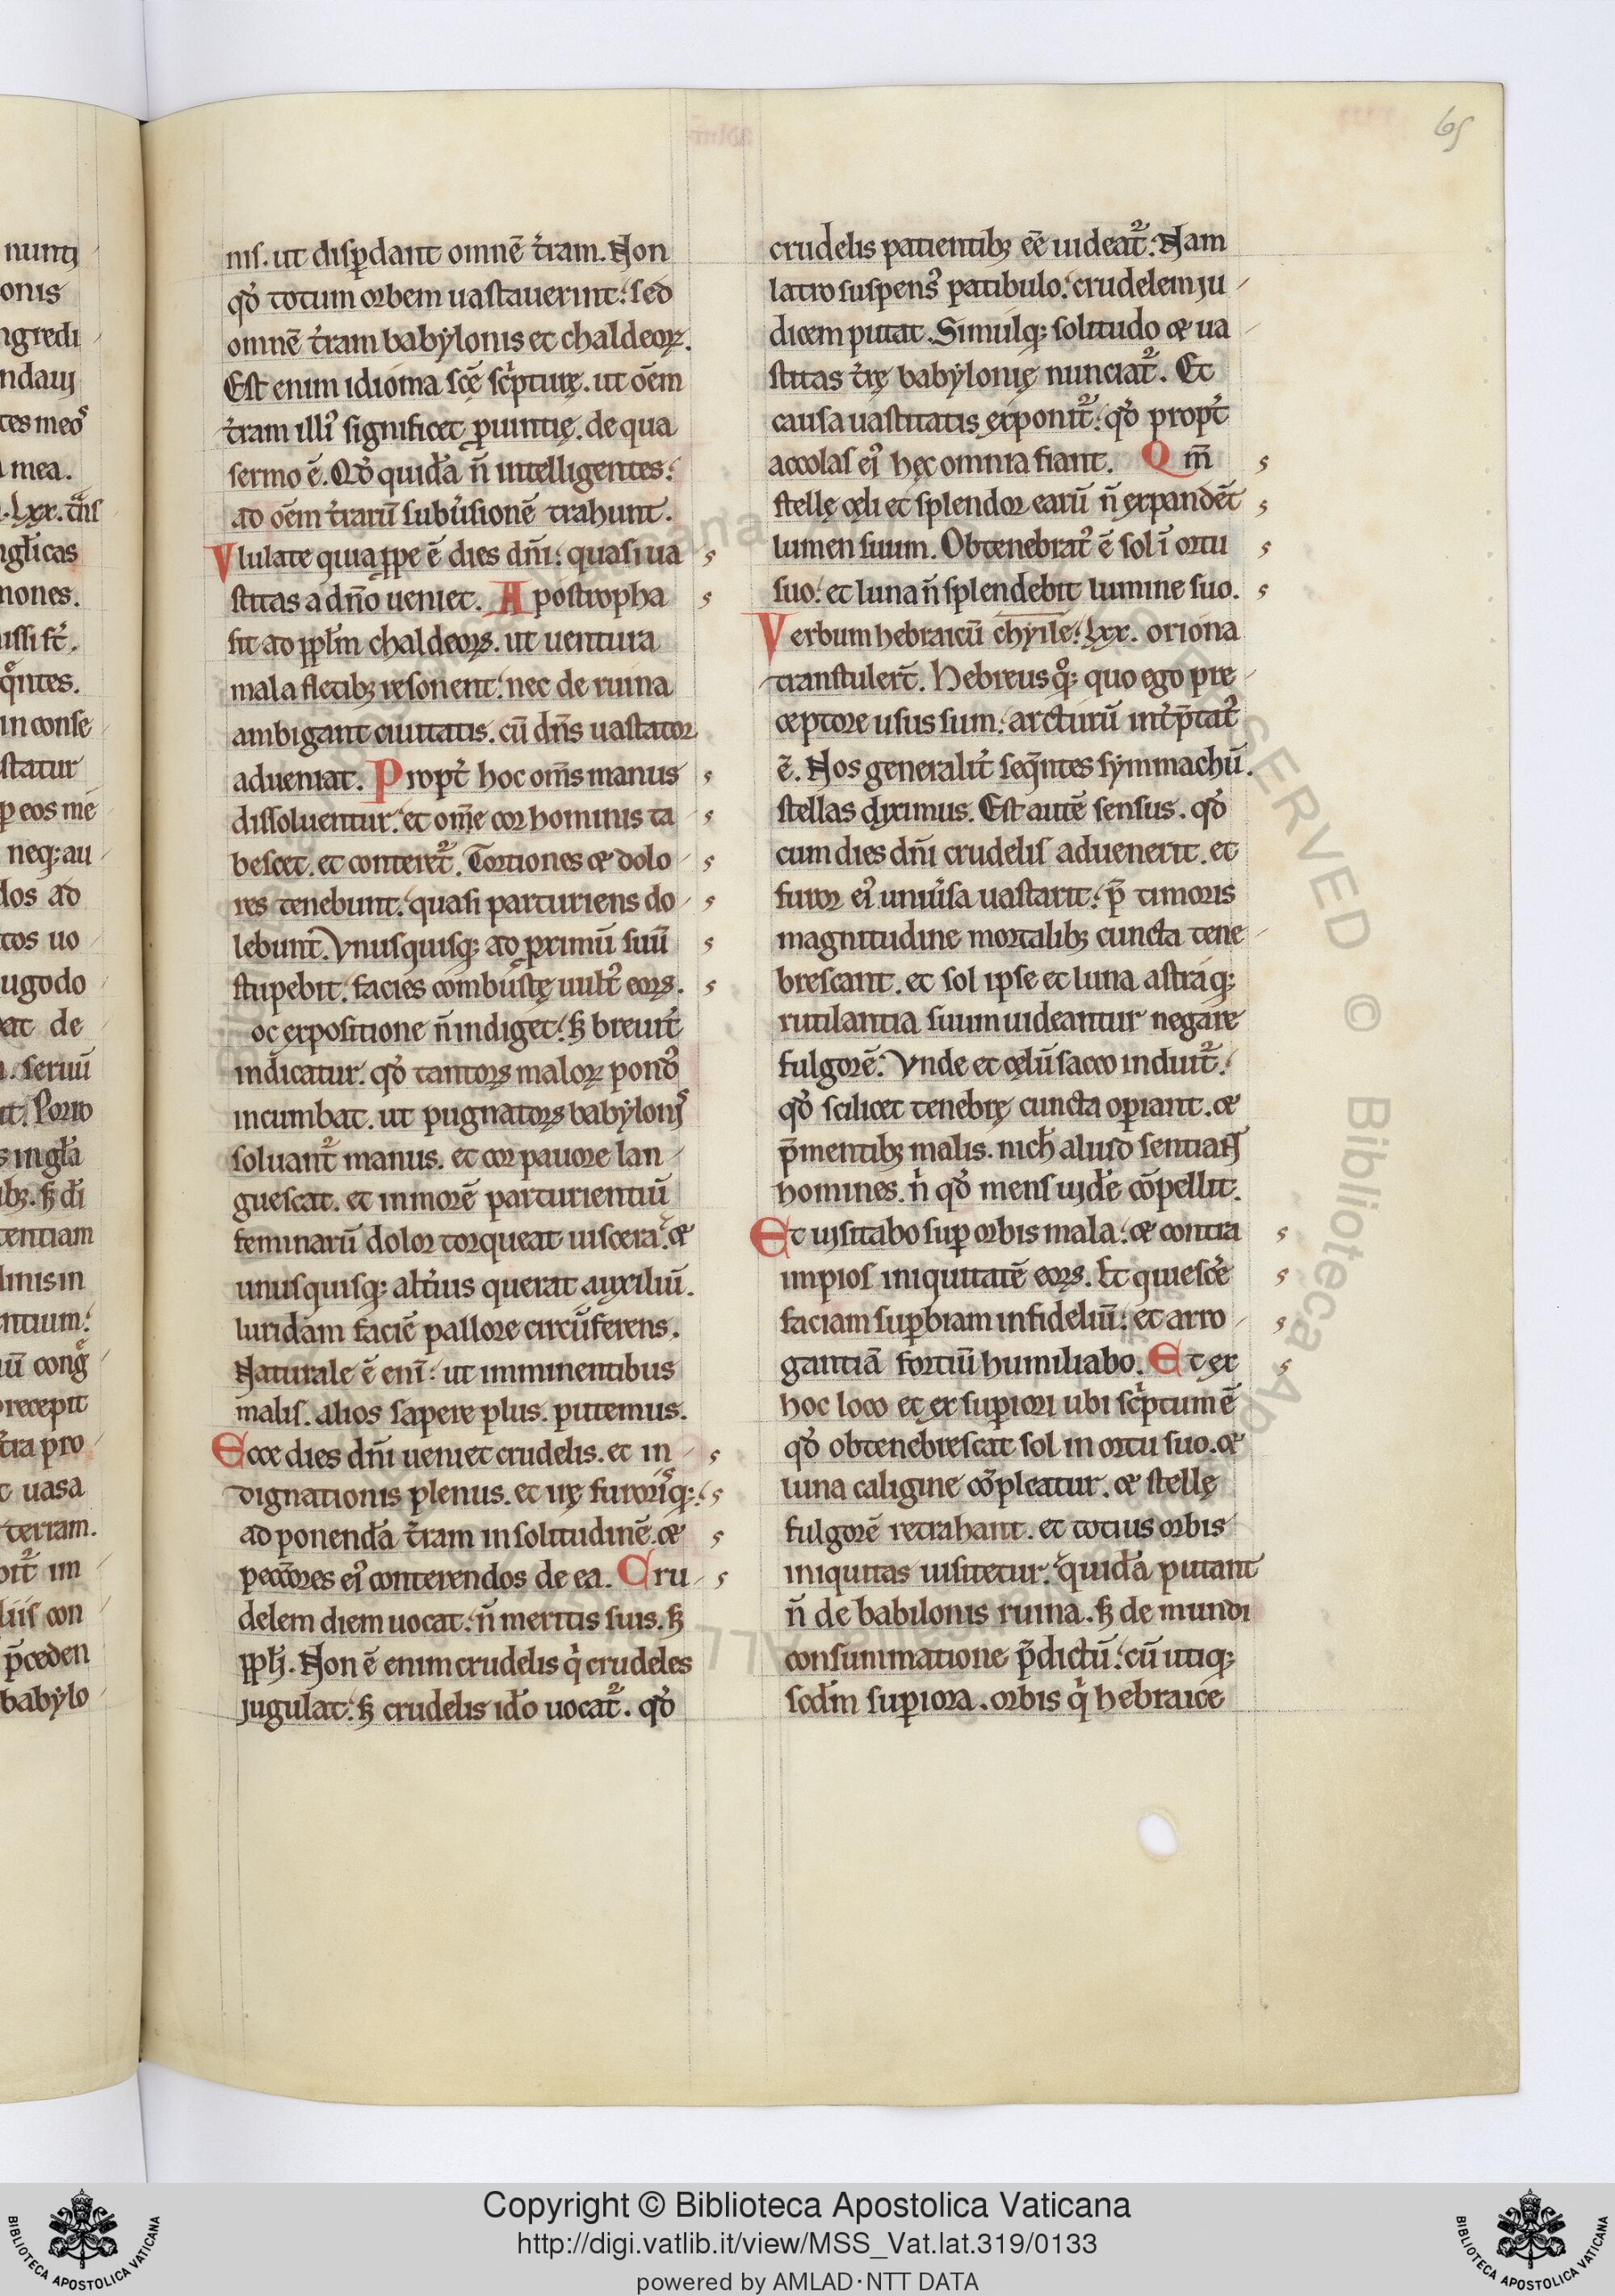 65
nunꝗ
onis
ngredi
ndaıȷ
tes meoˢ
mea.
.lxx.
nglicas
nones.
in conse
statur
eos me
neq; au
dos ad
tos uo
ugodo
at de
seruū
Porro
tentiam
inis in
ntium.
recepit
tra pro
uasa
terram.
liis con
p̄ceden
babẏlo
nis. ut disꝑdant omnē t̄ram. Non
qđ totum orbem uastauerint: sed
omnē t̄ram babẏlonis et chaldeoꝝ.
Est enim idioma scē sc̄pturę. ut oēm
t̄ram illiꝰ significet ꝓuintię. de qua
sermo ē. Qđ quidā n̄ intelligentes:
ad oēm t̄rarū subūsionē trahunt.
Vlulate quia ꝓpe ē dies dn̄i: quasi ua
stitas a dn̄o ueniet. Apostropha
fit ad ppłm chaldeoꝝ. ut uentura
mala fletibꝫ resonent: nec de ruina
ambigant ciuitatis. cū dn̄s uastator
adueniat. Propt̄ hoc om̄s manus
dissoluentur: et om̄e cor hominis ta
bescet. et conteret᷑. Tortiones et dolo
res tenebunt: quasi parturiens do
lebunt. Vnusquisq; ad ꝓximū suū
stupebit. facies combustę uultꝰ eoꝝ.
oc expositione n̄ indiget: sꝫ breuit̄
indicatur. qđ tantoꝝ maloꝝ pondꝰ
incumbat. ut pugnatoꝝ babẏlonıˢ
soluant᷑ manus. et cor pauore lan
guescat. et in morē parturientiū
feminarū dolor torqueat uiscera: et
unusquisq; alt̄ius querat auxiliū.
luridam faciē pallore circūferens.
Naturale ē enī: ut imminentibus
malis. alios sapere plus. putemus.
Ecce dies dn̄i ueniet crudelis. et in
dignationis plenus. et irę furorisq;:
ad ponendā t̄ram in solitudinē. et
peccōres eiꝰ conterendos de ea. Cru
delem diem uocat: n̄ meritis suis. sꝫ
pplı̄. Non ē enim crudelis qͥ crudeles
jugulat: sꝫ crudelis idō uocat᷑. qđ
crudelis patientibꝫ eē uideat᷑. Nam
latro suspensꝰ patibulo: crudelem ju
dicem putat. Simulq; solitudo et ua
stitas t̄rę babẏlonię nunciat᷑. Et
causa uastitatis exponit᷑: qđ propt̄
accolas eiꝰ hęc omnia fiant. Qm̄
stellę cęli et splendor earū n̄ expandēt
lumen suum. Obtenebratꝰ ē sol ī ortu
suo: et luna n̄ splendebit lumine suo.
Verbum hebraicū chẏile: lxx. oriona
transtuler̄t. Hebreus qͦq; quo ego pre
ceptore usus sum: arcturū int̄p̄tatꝰ
ē. Nos generalit̄ seq̄ntes sẏmmachū.
stellas dyximus. Est autē sensus. qđ
cum dies dn̄i crudelis aduenerit. et
furor eiꝰ uniūsa uastarit: p̄ timoris
magnitudine mortalibꝫ cuncta tene
brescant. et sol ipse et luna astraq;
rutilantia suum uideantur negare
fulgorē. Vnde et cęlū sacco induit᷑:
qđ scilicet tenebrę cuncta oꝑiant. et
p̄mentibꝫ malis. nich̄ aliud sentiant
homines. n̄ qđ mens uıdē cōpellit.
Et uisitabo suꝑ orbis mala: et contra
impios iniquitatē eoꝝ. Et quiesce̅
faciam suꝑbiam infideliū: et arro
gantiā fortiū humiliabo. Et ex
hoc loco et ex suꝑiori ubi sc̄ptum ē
qđ obtenebrescat sol in ortu suo. et
luna caligine cōpleatur. et stellę
fulgorē retrahant. et totius orbis
iniquitas uisitetur: quidā putant
n̄ de babilonis ruina. sꝫ de mundi
consummatione p̄dictū: cū utiq;
scdm̄ suꝑiora. orbis qͥ hebraice
Copyright © Biblioteca Apostolica Vaticana
http://digi.vatlib.it/view/MSS_Vat.lat.319/0133
powered by AMLAD·NTT DATA
BIBLIOTECA APOSTOLICA VATICANA
BIBLIOTECA APOSTOLICA VATICANA